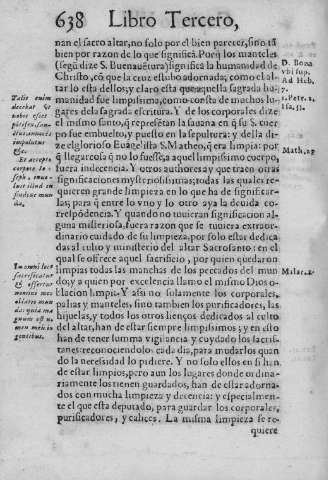 638 Libro Tercero,
nan el sacro altar, no solo por el bien parecer, sino tā
bien por razon de lo que significā. Porq̃ los manteles
(segū dize S. Buenauētura) significā la humanidad de
Christo, cō que la cruz estubo adornada, como el al-
tar lo esta dellos, y claro esta que aquella sagrada hu-
manidad fue limpisima, como consta de muchos lu-
gares dela sagrada escritura. Y de los corporales dize
el mismo santo, q̃ represētan la sauana en q̃ su S. cuer
po fue embuelto, y puesto en la sepultura: y desta di-
ze el glorioso Euāgelista S. Matheo, q̃ era limpia: por
q̃ llegarcela q̃ no lo fuesse, a aquel limpisimo cuerpo,
fuera indecencia. Y otros authores ay que traen otras
significaciones mysteriosisimas; todas las quales re-
quieren grande limpieza en lo que ha de significar-
las, para q̃ entre lo vno y lo otro aya la deuida co-
rrespōdencia. Y quando no tuuieran significacion al-
guna misteriosa, fuera razon que se tuuiera extraor-
dinario cuidado de su limpieza, por solo estar dedica
das al culto y ministerio del altar Sacrosanto: en el
qual se offrece aquel sacrificio, por quien quedaron
limpias todas las manchas de los peccados del mun
do, y a quien por excelencia llamo el mismo Dios o-
blacion limpia. Y asi no solamente los corporales,
palias y manteles, sino tambien los purificadores, las
hijuelas, y todos los otros lienços dedicados al culto
del altar, han de estar siempre limpisimos; y en esto
han de tener summa vigilancia y cuydado los sacris-
tanes: reconociendolo cada dia, para mudarlos quan
do la necesidad lo pidiere. Y no solo ellos en si han
de estar limpios, pero aun los lugares donde ordina-
riamente los tienen guardados, han de estar adorna-
dos con mucha limpieza y decencia: y especialmen-
te el que esta deputado, para guardar los corporales,
purificadores, y calices. La misma limpieza se re-
quiere
D. Bona
vbi sup.
Ad Heb.
7.
1. Petr. 2
Isa. 53.
Math. 27
Malac. 1.
Talis enim
decebat vt
nobis esset
Et accepto
corpore Io-
seph, inuo-
luit illud in
sindone mun
da.
In omni loco
sacrificatur
& offertur
nomini meo
oblatio mun
da: quia ma
gnum est no
men meū in
gentibus.